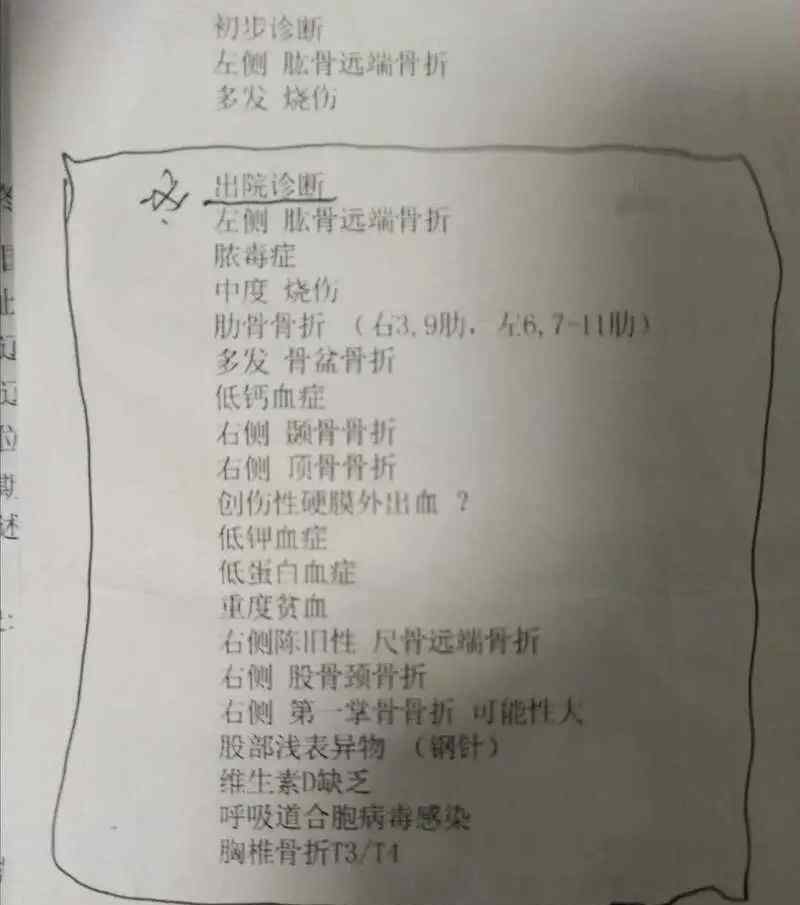 初步诊断
左侧 肱骨远端骨折
多发 烧伤
出院诊断
左侧 肱骨远端骨折
脓毒症
中度 烧伤
肋骨骨折 （右3,9肋，左6,7-11肋）
多发 骨盆骨折
低钙血症
右侧 颞骨骨折
右侧 顶骨骨折
创伤性硬膜外出血 ？
低钾血症
低蛋白血症
重度贫血
右侧陈旧性 尺骨远端骨折
右侧 股骨颈骨折
右侧 第一掌骨骨折 可能性大
股部浅表异物 （钢针）
维生素D缺乏
呼吸道合胞病毒感染
胸椎骨折T3/T4